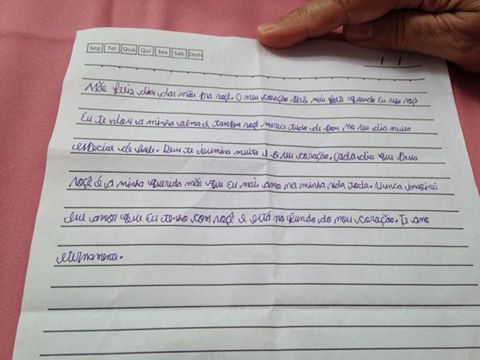 Seg Ter Qua Qui Sex Sáb Dom
Mãe feliz dia das mãe pra voçê. O meu coração bate mais forte quando eu vejo voçê
Eu te dou a minha alma e tambem voçê merece tudo de bom no seu dia muito
especial de hoje. Deus te ilumina muito é o seu coração. Cada dia que
voçê é a minha querida mãe que Eu mais amo na minha vida toda. Nunca imaginei
amor que Eu tenho com voçê e está no fundo do meu coração. Te amo